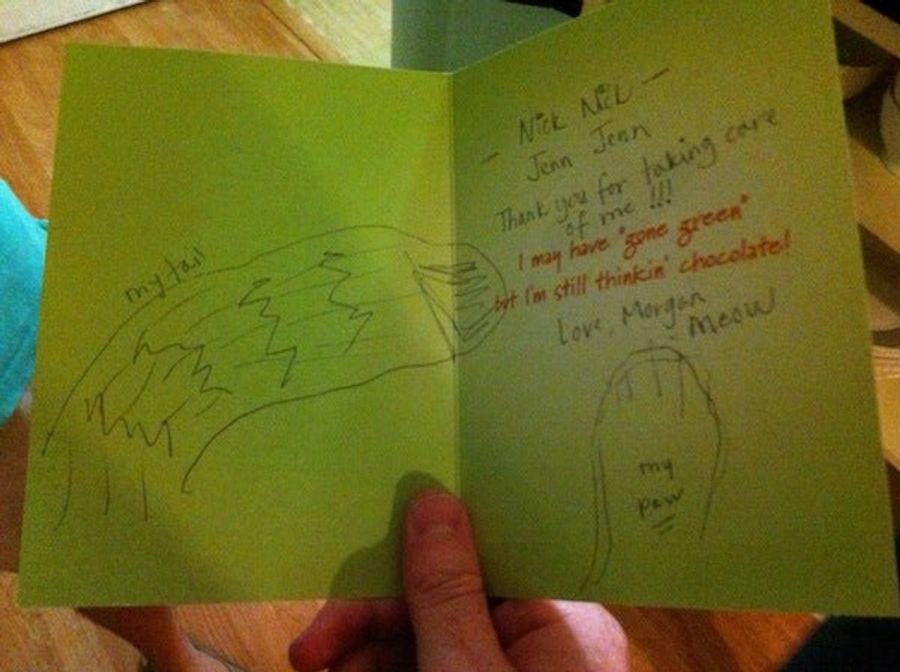 my tail
— Nick Nick —
Jenn Jenn
Thank you for taking care
of me !!!
I may have "gone green"
but I'm still thinkin' chocolate!
Love, Morgan
Meow
my
paw